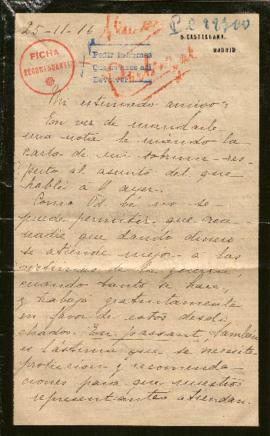 25-11-16
5. CASTELLANA.
MADRID
FICHA
RECOMENDANTES
Pedir informes
Mi estimado amigo:
En vez de mandarle
una nota le mando la
carta de mi sobrina res-
pecto al asunto del que
hablé a V. ayer.
Como Vd. no se
puede permitir que
nadie que dando dinero
se atiende mejor a las
víctimas de la guerra,
cuando tanto se hace,
y trabaja gratuitamente
en favor de estos desdi-
chados. En passant, también
es lástima que se necesite
proteccion y recomenda-
ciones para que nuestros
representantes atiendan.